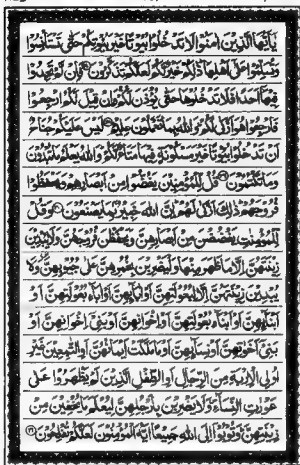 يَٰٓأَيُّهَا ٱلَّذِينَ ءَامَنُوا۟ لَا تَدْخُلُوا۟ بُيُوتًا غَيْرَ بُيُوتِكُمْ حَتَّىٰ تَسْتَأْنِسُوا۟
وَتُسَلِّمُوا۟ عَلَىٰٓ أَهْلِهَا ذَٰلِكُمْ خَيْرٌ لَّكُمْ لَعَلَّكُمْ تَذَكَّرُونَ ۝ فَإِن لَّمْ تَجِدُوا۟
فِيهَآ أَحَدًا فَلَا تَدْخُلُوهَا حَتَّىٰ يُؤْذَنَ لَكُمْ وَإِن قِيلَ لَكُمُ ٱرْجِعُوا۟
فَٱرْجِعُوا۟ هُوَ أَزْكَىٰ لَكُمْ وَٱللَّهُ بِمَا تَعْمَلُونَ عَلِيمٌ ۝ لَّيْسَ عَلَيْكُمْ جُنَاحٌ
أَن تَدْخُلُوا۟ بُيُوتًا غَيْرَ مَسْكُونَةٍ فِيهَا مَتَٰعٌ لَّكُمْ وَٱللَّهُ يَعْلَمُ مَا تُبْدُونَ
وَمَا تَكْتُمُونَ ۝ قُل لِّلْمُؤْمِنِينَ يَغُضُّوا۟ مِنْ أَبْصَٰرِهِمْ وَيَحْفَظُوا۟
فُرُوجَهُمْ ذَٰلِكَ أَزْكَىٰ لَهُمْ إِنَّ ٱللَّهَ خَبِيرٌۢ بِمَا يَصْنَعُونَ ۝ وَقُل
لِّلْمُؤْمِنَٰتِ يَغْضُضْنَ مِنْ أَبْصَٰرِهِنَّ وَيَحْفَظْنَ فُرُوجَهُنَّ وَلَا يُبْدِينَ
زِينَتَهُنَّ إِلَّا مَا ظَهَرَ مِنْهَا وَلْيَضْرِبْنَ بِخُمُرِهِنَّ عَلَىٰ جُيُوبِهِنَّ وَلَا
يُبْدِينَ زِينَتَهُنَّ إِلَّا لِبُعُولَتِهِنَّ أَوْ ءَابَآئِهِنَّ أَوْ ءَابَآءِ بُعُولَتِهِنَّ أَوْ
أَبْنَآئِهِنَّ أَوْ أَبْنَآءِ بُعُولَتِهِنَّ أَوْ إِخْوَٰنِهِنَّ أَوْ بَنِىٓ إِخْوَٰنِهِنَّ أَوْ
بَنِىٓ أَخَوَٰتِهِنَّ أَوْ نِسَآئِهِنَّ أَوْ مَا مَلَكَتْ أَيْمَٰنُهُنَّ أَوِ ٱلتَّٰبِعِينَ غَيْرِ
أُو۟لِى ٱلْإِرْبَةِ مِنَ ٱلرِّجَالِ أَوِ ٱلطِّفْلِ ٱلَّذِينَ لَمْ يَظْهَرُوا۟ عَلَىٰ
عَوْرَٰتِ ٱلنِّسَآءِ وَلَا يَضْرِبْنَ بِأَرْجُلِهِنَّ لِيُعْلَمَ مَا يُخْفِينَ مِن
زِينَتِهِنَّ وَتُوبُوٓا۟ إِلَى ٱللَّهِ جَمِيعًا أَيُّهَ ٱلْمُؤْمِنُونَ لَعَلَّكُمْ تُفْلِحُونَ ۝